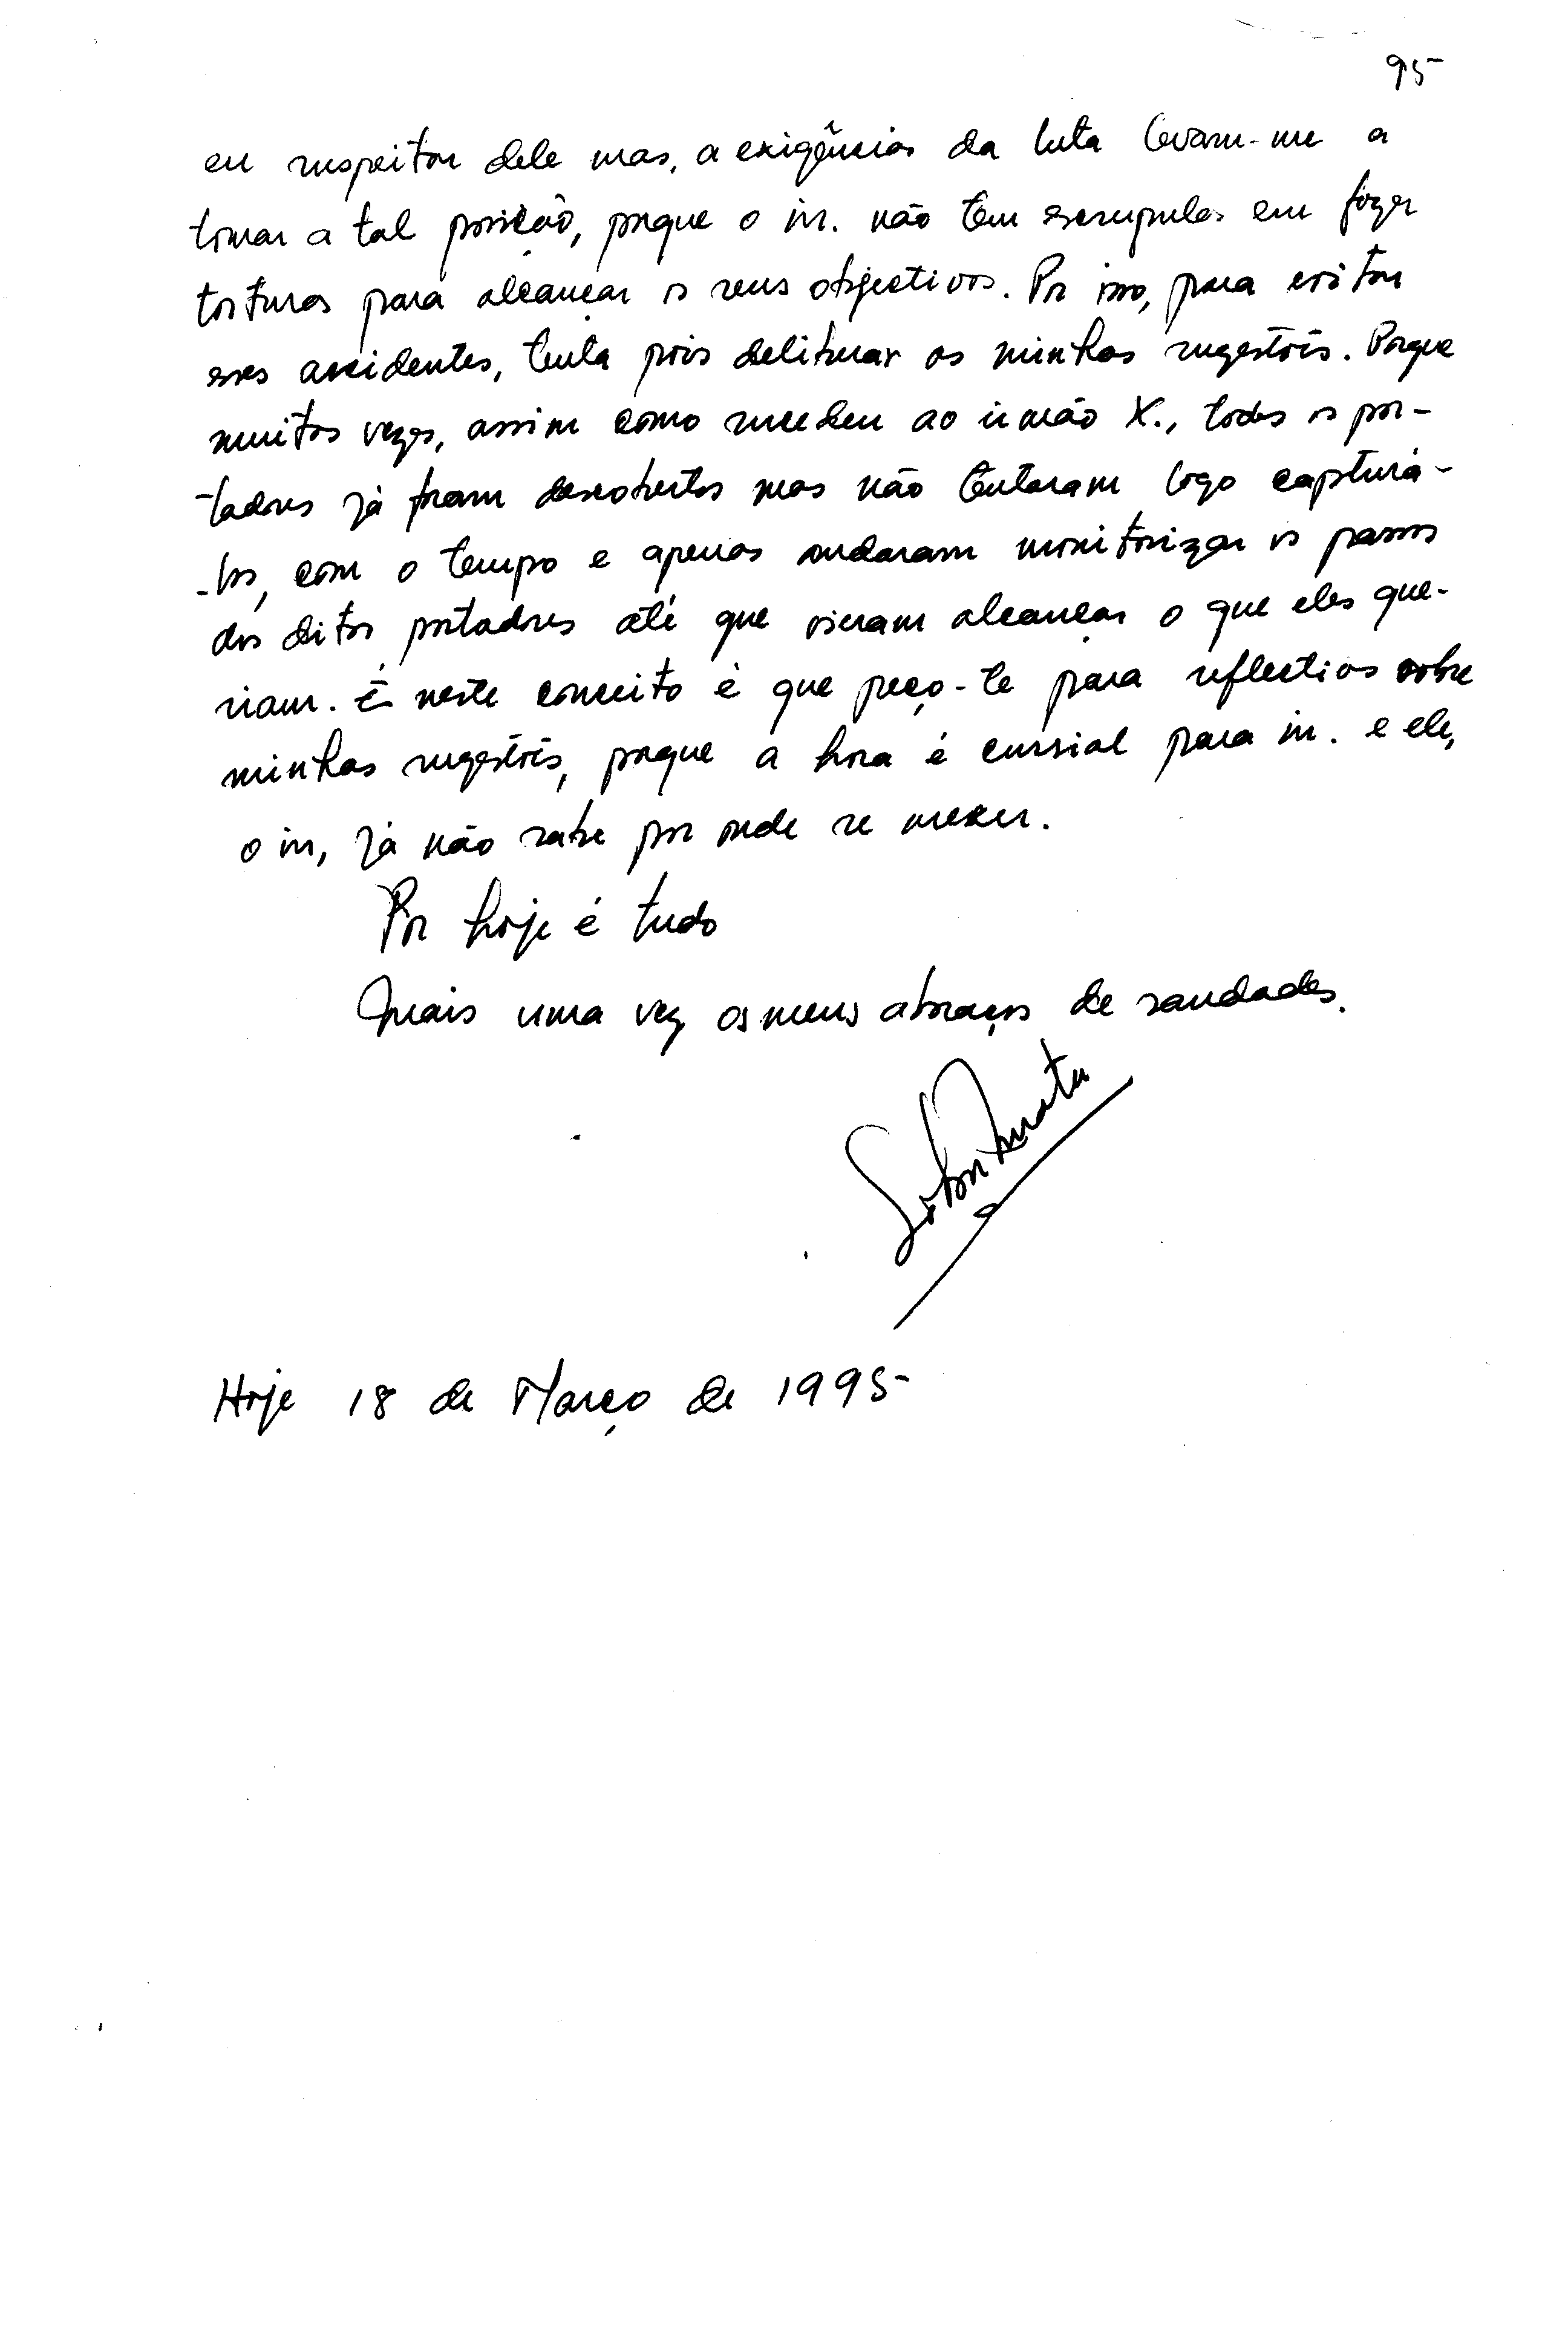 95
eu suspeitar dele mas, a exigências da luta levam-me a
tomar a tal posição, porque o in. não tem escrupulos em fazer
torturas para alcançar os seus objectivos. Por isso, para evitar
esses assidentes, tenta pois deliberar as minhas sugestõis. Porque
muitas vezes, assim como sucedeu ao irmão X., todos os por-
-tadores já foram descobertos mas não tentaram logo capturá-
-los, com o tempo e apenas andaram monitorizar os passos
dos ditos portadores até que vieram alcançar o que eles que-
riam. É neste conceito é que peço-te para reflectires sobre
minhas sugestõis, porque a hora é cursial para in. e ele,
o in, já não sabe por onde se mexer.
Por hoje é tudo
Mais uma vez os meus abraços de saudades.
Hoje 18 de Março de 1995